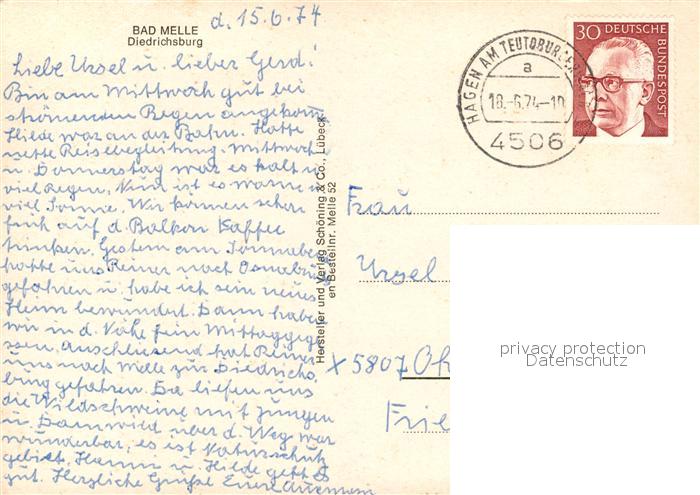 BAD MELLE
Diedrichsburg
d. 15.6.74
Liebe Ursel u. lieber Gerd!
Bin am Mittwoch gut bei
strömenden Regen angekom
Hilde war an der Bahn. Hatte
nette Reisebegleitung. Mittwoch
u. Donnerstag war es kalt u
viel Regen, Nun ist es warm u
viel Sonne. Wir können schon
früh auf d. Balkon Kaffee
trinken. Gestern am Sonnabe
hatte uns Reiner nach Osnabrück
gefahren u. habe ich sein neues
Heim bewundert. Dann haben
wir in d. Nähe fein Mittaggeges
sen. Anschliessend hat Reiner
uns nach Melle zur Diedrichs
burg gefahren. Da liefen uns
die Wildschweine mit Jungen
u. Damwild über d. Weg war
wunderbar, es ist Naturschutz
gebiet. Hanni u. Hilde geht es
gut. Herzliche Grüße Eure
Hersteller und Verlag Schöning & Co., Lübeck
en Bestellnr. Melle 52
HAGEN AM TEUTOBURGER
a
18.-6.74-10
4506
30 DEUTSCHE
BUNDESPOST
Frau
Ursel
X 5807 Oh
Frie
privacy protection
Datenschutz